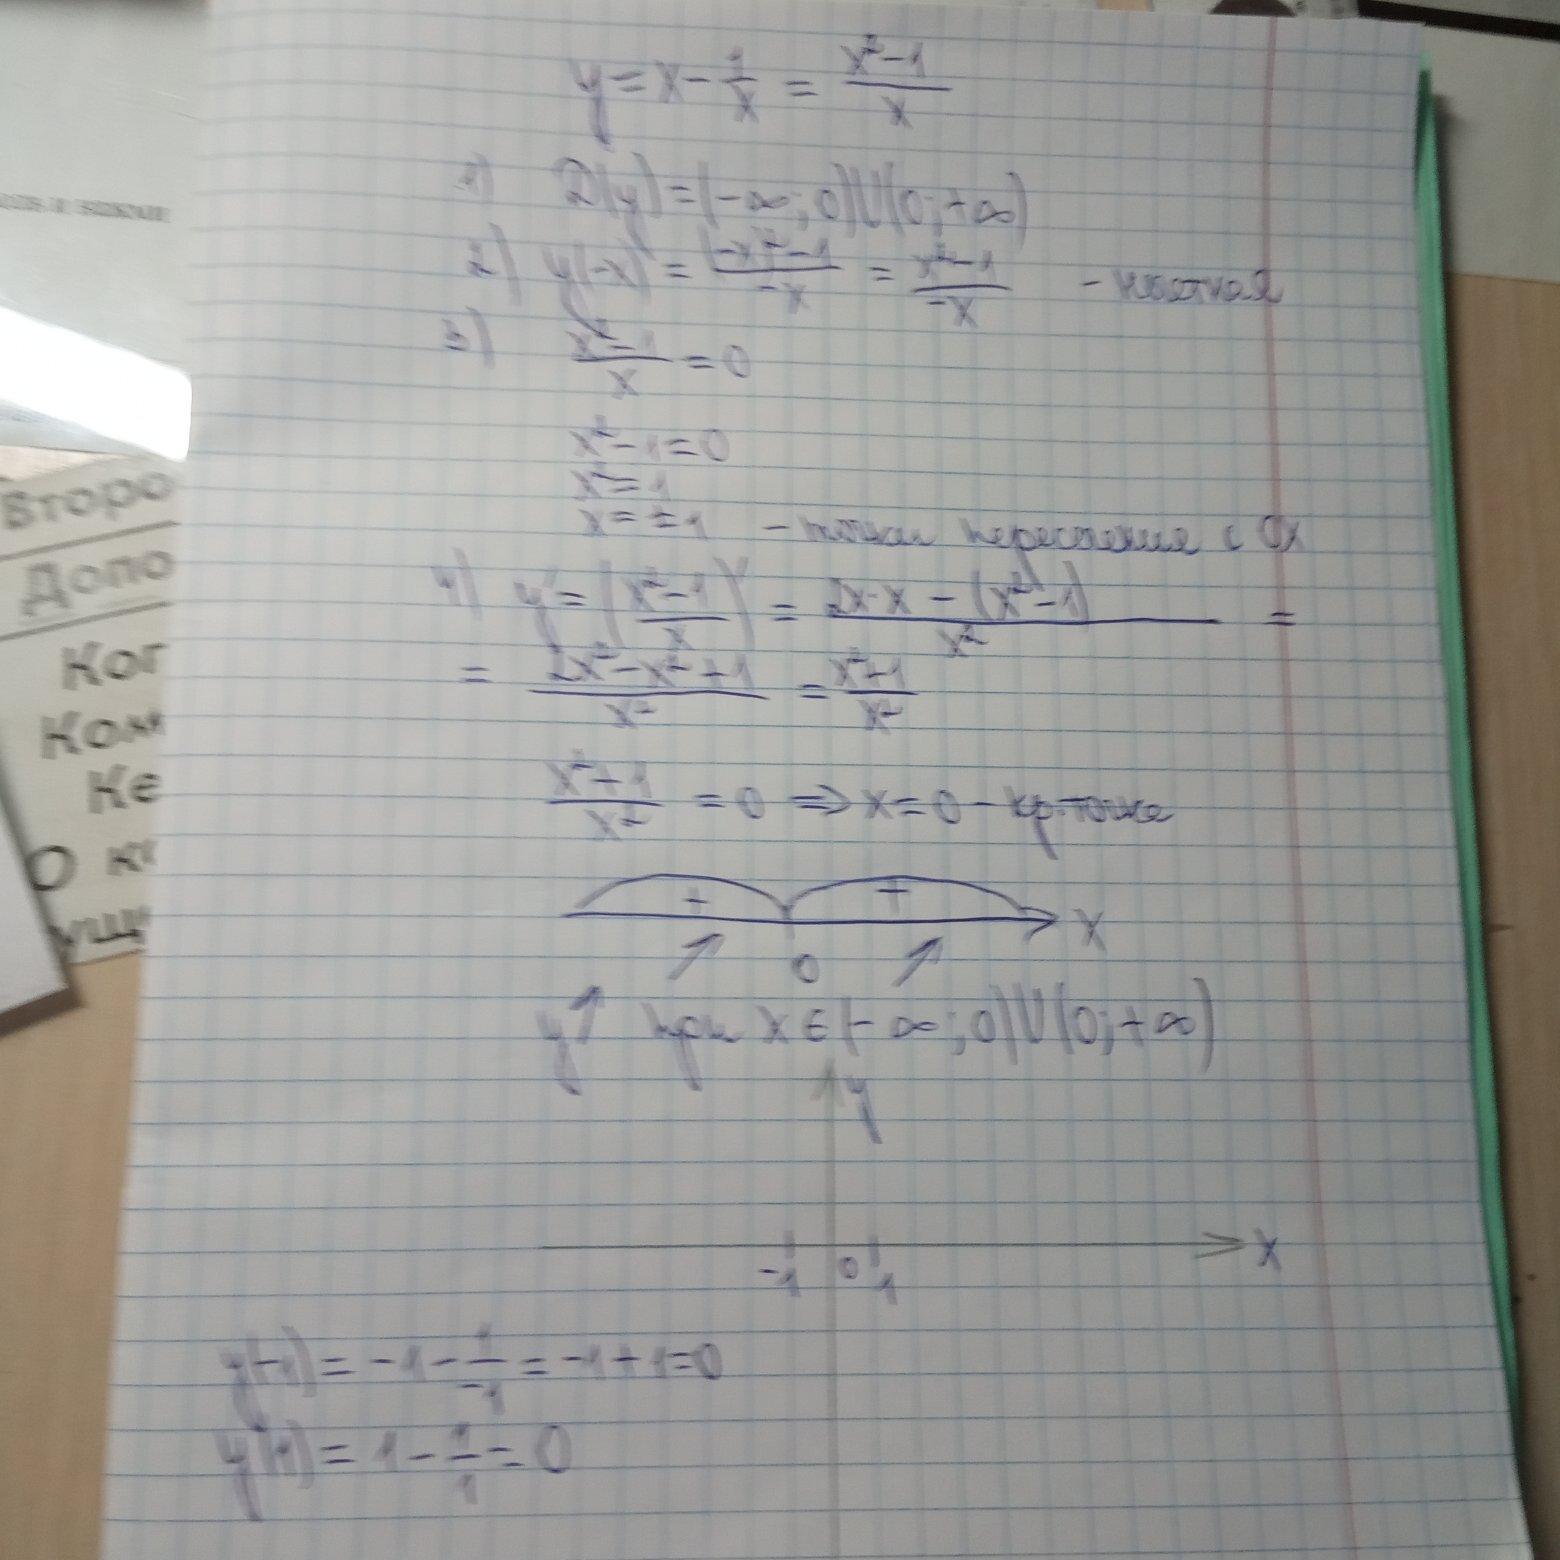 y = x - 1/x = (x² - 1)/x
1) D(y) = (-∞; 0)∪(0; +∞)
2) y(-x) = ((-x)² - 1)/(-x) = (x² - 1)/(-x) -
3) (x² - 1)/x = 0
x² - 1 = 0
x² = 1
x = ±1 - точки пересечения с Ox
4) y' = ((x² - 1)/x)' = (2x·x - (x² - 1))/x² =
= (2x² - x² + 1)/x² = (x² + 1)/x²
(x² + 1)/x² = 0 => x = 0 - кр. точка
+ + x
0
y↑ при x ∈ (-∞; 0)∪(0; +∞)
y
x
-1 0 1
y(-1) = -1 - 1/(-1) = -1 + 1 = 0
y(1) = 1 - 1/1 = 0
Второ
Допо
Ког
Ком
Ке
О ко
ущ